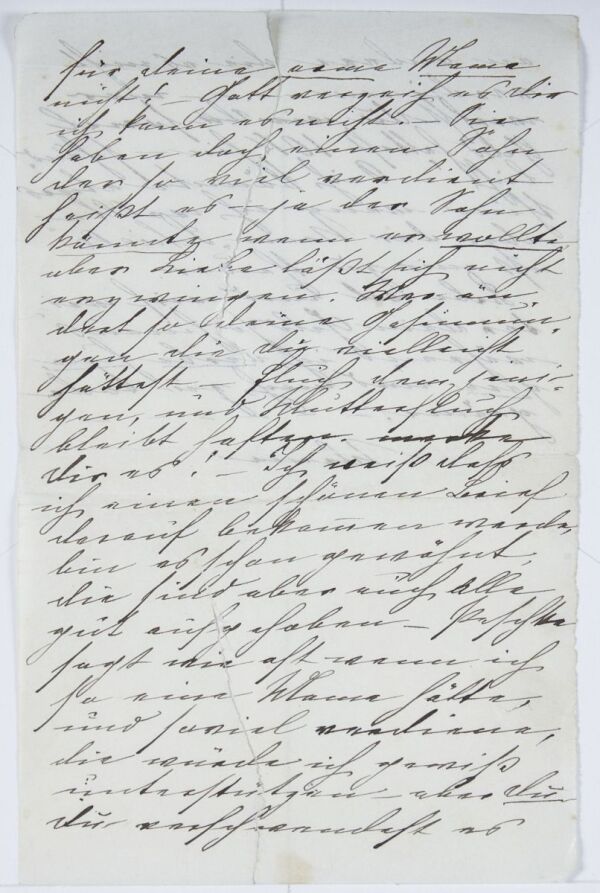 für deine arme Mama
nicht! – Gott verzeih es dir
ich kann es nicht. – Sie
haben doch einen Sohn
der so viel verdient
heißt es – ja der Sohn
könnte wenn er wollte
aber Liebe läßt sich nicht
erzwingen. Wer än-
dert so deine Gesinnun-
gen die du vielleicht
hättest – Fluch dem jeni-
gen, und Mutterfluch
bleibt haften. merke
dir es! – Ich weiß daß
ich einen schönen Brief
darauf bekommen werde,
bin es schon gewöhnt,
die sind aber auch Alle
gut aufgehoben –
sagt wie oft wenn ich
so eine Mama hätte,
und soviel verdiene,
die würde ich gewiß
unterstützen – aber du
du verschwendest es